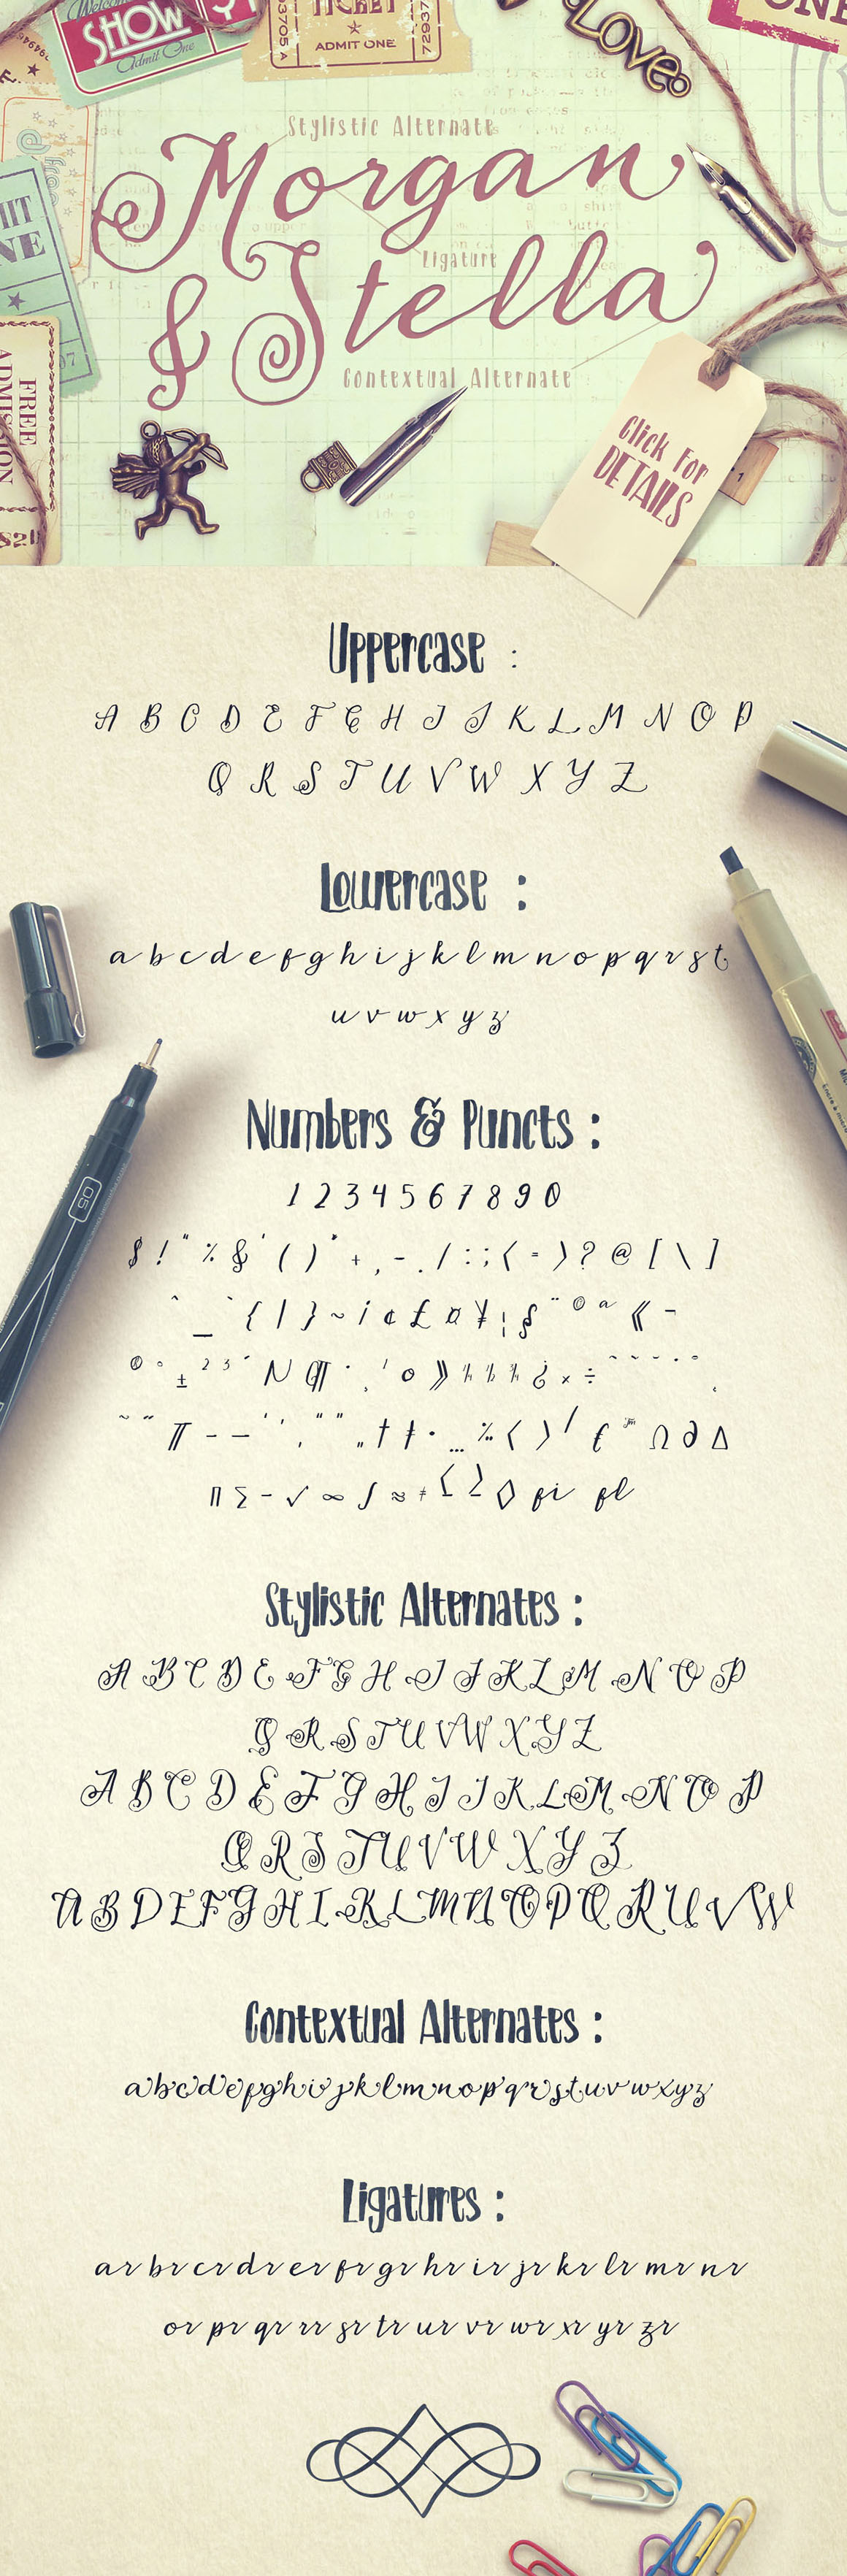 Welcome
SHOW
Admit One
TICKET
ADMIT ONE
3705 A
72937
Love
ONE
Stylistic Alternate
Morgan
Ligature
& Stella
Contextual Alternate
NE
97
FREE
Click For
DETAILS
Uppercase :
A B C D E F G H I J K L M N O P
Q R S T U V W X Y Z
Lowercase :
a b c d e f g h i j k l m n o p q r s t
u v w x y z
Numbers & Puncts :
1 2 3 4 5 6 7 8 9 0
$ ! " % & ' ( ) * + , - . / : ; < = > ? @ [ \ ]
^ _ ` { | } ~ ¡ ¢ £ ¤ ¥ ¦ § ¨ © ª « ¬
® ° ± ² ³ ´ N ¶ · ¸ ¹ º » ¼ ½ ¾ ¿ × ÷
π – — ‘ ’ ‚ “ ” „ † ‡ • … ‰ ‹ › ⁄ € ™ Ω ∂ ∆
∏ ∑ − √ ∞ ∫ ≈ ≠ ≤ ≥ ◊ fi fl
Stylistic Alternates :
A B C D E F G H I J K L M N O P
Q R S T U V W X Y Z
A B C D E F G H I J K L M N O P
Q R S T U V W X Y Z
A B D E F G H I K L M N O P Q R U V W
Contextual Alternates :
a b c d e f g h i j k l m n o p q r s t u v w x y z
Ligatures :
ar br cr dr er fr gr hr ir jr kr lr mr nr
or pr qr rr sr tr ur vr wr xr yr zr
05